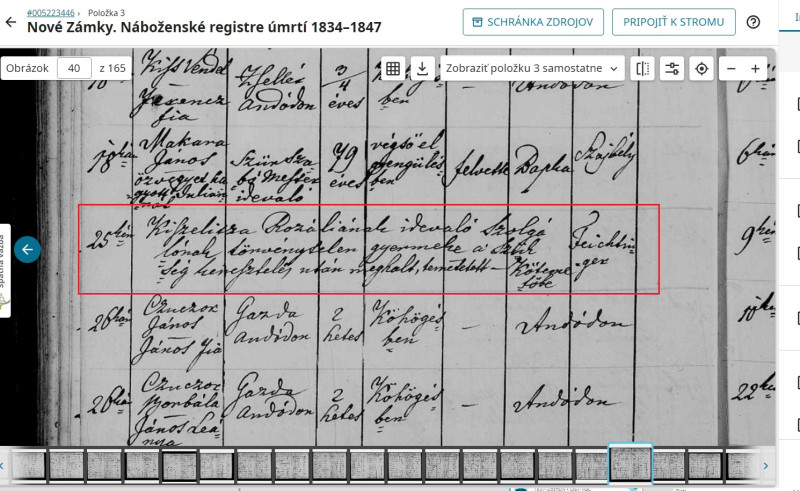 #005223446 › Položka 3
Nové Zámky. Náboženské registre úmrtí 1834–1847
SCHRÁNKA ZDROJOV
PRIPOJIŤ K STROMU
Obrázok 40 z 165
Zobraziť položku 3 samostatne
Kiss Vendel
Ferencz
fia
Hellér
Andódon
3/4
éves
ben
Andódon
18kán
Makara
János
özvegyet ha
gyott Julián
nas
Szűn Sza
bó Mester
idevaló
79
éves
végső el
gyengülés
ben
felvette
Bapka
6kán
25kén
Kiszelicza Rozáliának idevaló Szolgá
lónak törvénytelen gyermeke a Szük
ség keresztelés után meghalt, temettetett —
Feichtin
ger
9kén
26kán
Czuczor
János
János fia
Gazda
Andódon
2
hetes
Köhögés
ben
—
Andódon
10kén
26kán
Czuczor
Borbála
János Leá
nya
Gazda
Andódon
2
hetes
Köhögés
ben
—
Andódon
22kén